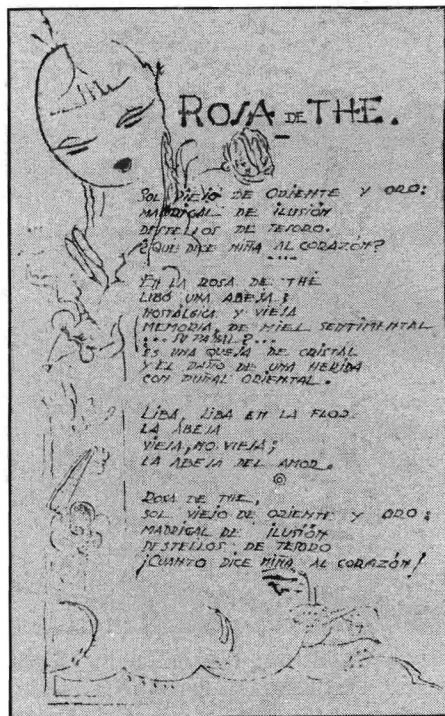 ROSA DE THE.
SOL VIEJO DE ORIENTE Y ORO:
MADRIGAL DE ILUSIÓN
DESTELLOS DE TESORO.
¿QUE DICE NIÑA AL CORAZÓN?
....
EN LA ROSA DE THE
LIBÓ UNA ABEJA;
NOSTÁLGICA Y VIEJA
MEMORIA, DE MIEL SENTIMENTAL
... SU PANAL?...
ES UNA QUEJA DE CRISTAL
Y EL DAÑO DE UNA HERIDA
CON PUÑAL ORIENTAL.
LIBA, LIBA EN LA FLOR
LA ABEJA
VIEJA, NO VIEJA;
LA ABEJA DEL AMOR.
ROSA DE THE,
SOL VIEJO DE ORIENTE Y ORO:
MADRIGAL DE ILUSIÓN
DESTELLOS DE TESORO
¡CUANTO DICE NIÑA AL CORAZÓN!